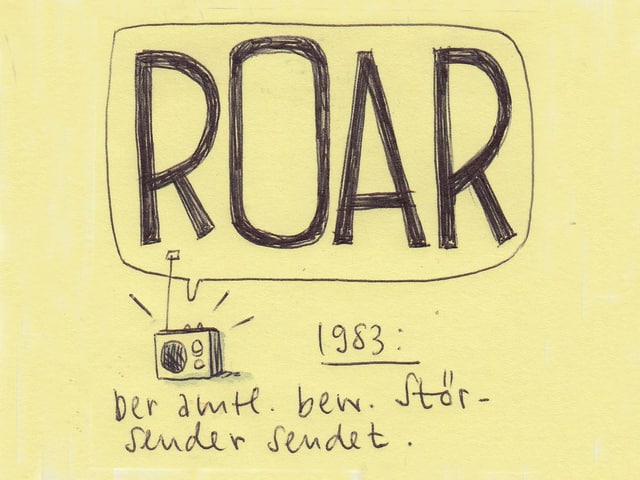 ROAR
1983:
Der amtl. bew. Stör-
sender sendet.